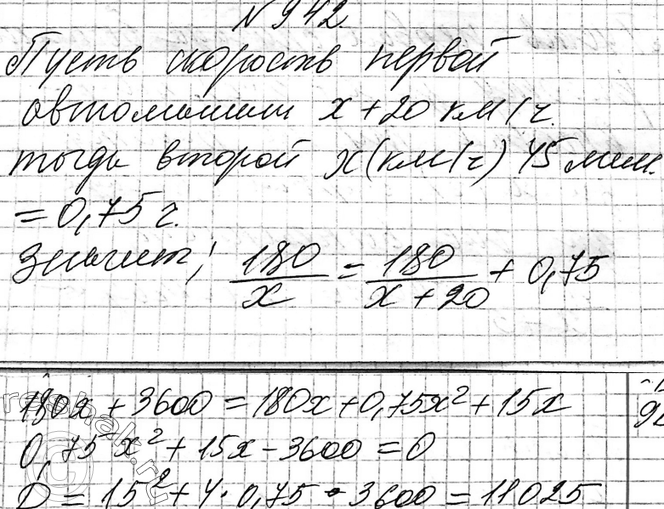 №942
Пусть скорость первой
автомашины x+20 км/ч.
тогда второй x(км/ч) 45 мин.
=0,75 ч.
Значит; 180/x = 180/(x+20) + 0,75
180x+3600=180x+0,75x²+15x
0,75x²+15x-3600=0
D=15²+4·0,75·3600=11025